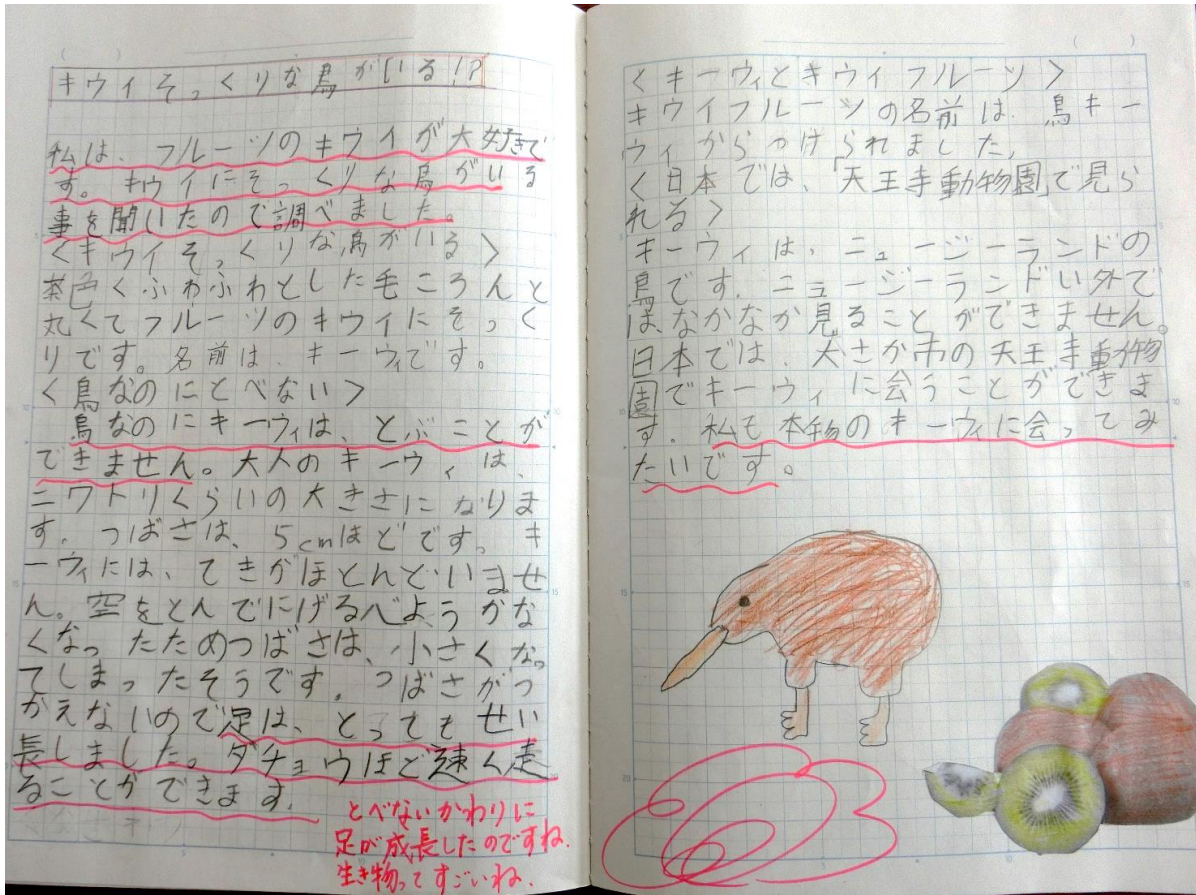 キウイそっくりな鳥がいる!?
私は、フルーツのキウイが大好きで
す。キウイにそっくりな鳥がいる
事を聞いたので調べました。
<キウイそっくりな鳥がいる>
茶色くふわふわとした毛ころんと
丸くてフルーツのキウイにそっく
りです。名前は、キーウィです。
<鳥なのにとべない>
鳥なのにキーウィは、とぶことが
できません。大人のキーウィは、
ニワトリくらいの大きさになりま
す。つばさは、5cmほどです。キ
ーウィには、てきがほとんどいませ
ん。空をとんでにげるべようがな
くなったためつばさは、小さくなっ
てしまったそうです。つばさがつ
かえないので足は、とってもせい
長しました。ダチョウほど速く走
ることができます。
とべないかわりに
足が成長したのですね。
生き物ってすごいね。
<キーウィとキウイフルーツ>
キウイフルーツの名前は、鳥キー
ウィからつけられました。
<日本では、「天王寺動物園」で見ら
れる>
キーウィは、ニュージーランドの
鳥です。ニュージーランドい外で
はなかなか見ることができません。
日本では、大さか市の天王寺動物
園でキーウィに会うことができま
す。私も本物のキーウィに会ってみ
たいです。